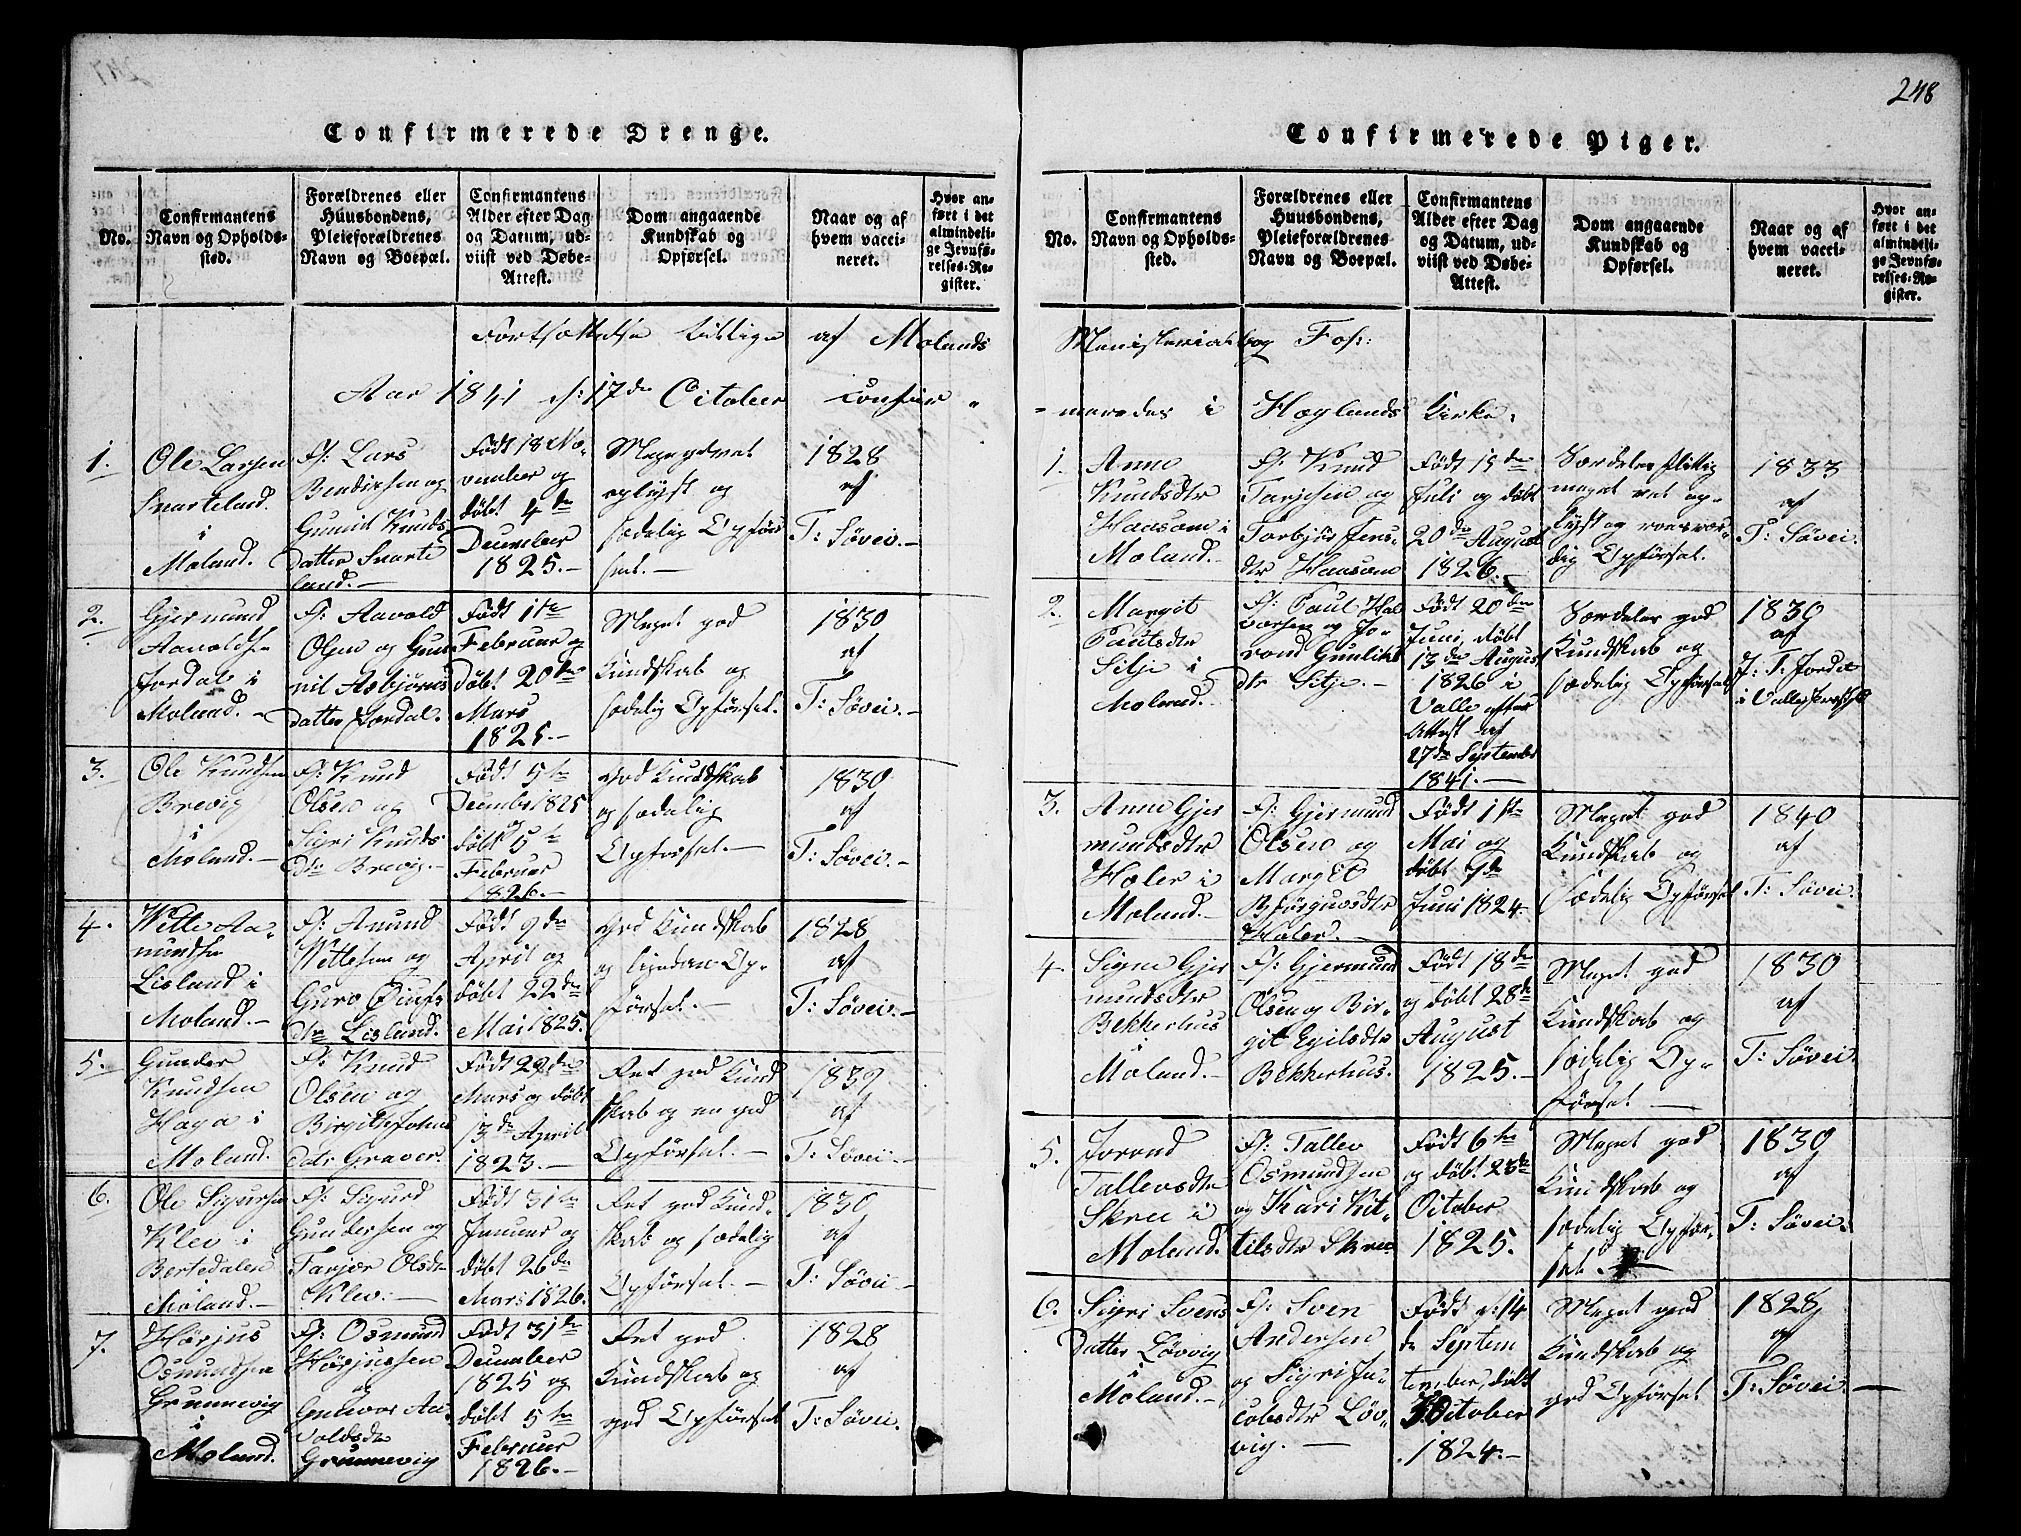 248
Confirmerede Drenge.
No.
Confirmantens
Navn og Opholds-
sted.
Forældrenes eller
Huusbondens,
Pleieforældrenes
Navn og Boepæl.
Confirmantens
Alder efter Dag
og Datum, ud-
viist ved Døbe-
Attest.
Dom angaaende
Kundskab og
Opførsel.
Naar og af
hvem vacci-
neret.
Hvor an-
ført i det
almindeli-
ge Jevnfø-
relses-Re-
gister.
Fortsættelse tillige af Molands
Aar 1841 d: 17de October confir-
1.
Ole Larsen
Snarteland
i
Moland.
F: Lars
Bendixsen og
Gunild Knuds
Datter Snarte
land.-
Født 18 No-
vember og
døbt 4de
December
1825.-
Meget vel
oplyst og
sædelig Opfør
sel.-
1828
af
T: Søvei.-
2.
Gjermund
Aavoldsen
Jordal i
Moland.-
F: Aavold
Olsen og Gun
nil Asbjørns
datter Jordal.
Født 1te
Februar og
Døbt 20de
Mars
1825.-
Meget god
Kundskab og
sædelig Opførsel.-
1830
af
T: Søvei.-
3.
Ole Knudsen
Brevig
i
Moland.-
F: Knud
Olsen og
Sigri Knuds
Dtr Brevig.-
Født 5te
Decembr 1825
og
døbt 5te
Februar
1826.-
God Kundskab
og sædelig
Opførsel.-
1830
af
T: Søvei.-
4.
Wetle Aa-
mundsen
Lisland i
Moland.-
F: Amund
Wettesen og
Guro
dtr Lisland.
Født 9de
April og
døbt 22de
Mai 1825.
God Kundskab
og ligedan Op-
førsel.-
1828
af
T: Søvei.-
5.
Gunder
Knudsen
Haga i
Moland.
F: Knud
Olsen og
Birgith Johns
Datr Graver.
Født 29de
Mars og døbt
13de April
1823.-
Ret god Kund
skab og en god
Opførsel.-
1839
af
T: Søvei.-
6.
Ole Sigursen
Klev i
Bertedalen
Moland.-
F: Sigurd
Gundersen og
Tarjer Olsdtr
Klev.-
Født 31te
Januar og
døbt 26de
Mars 1826.
Ret god Kund-
skab og sædelig
Opførsel.-
1830
af
T: Søvei-
7.
Hørjus
Osmundsen
Grunnevig
i
Moland.
F: Osmund
Hørjussen
og
Gunvor Aa-
voldsdtr
Grunnevig
Født 31te
December
1825 og
døbt 5te
Februar
1826.-
Ret god
Kundskab og
god Opførsel
1828
af
T: Søvei.
Confirmerede Piger.
No.
Confirmantens
Navn og Opholds-
sted.
Forældrenes eller
Huusbondens,
Pleieforældrenes
Navn og Boepæl.
Confirmantens
Alder efter Dag
og Datum, ud-
viist ved Døbe-
Attest.
Dom angaaende
Kundskab og
Opførsel.
Naar og af
hvem vacci-
neret.
Hvor an-
ført i det
almindeli-
ge Jevnfø-
relses-Re-
gister.
Ministerialbog Fol:
-merede i Høylands Kirke.
1.
Anne
Knudsdtr
Haasom i
Moland.-
F: Knud
Tarjesen og
Torbjør Jens-
dtr Haasom
Født 15de
Juli og døbt
20de August
1826.-
Særdeles flittig
meget vel op-
lyst og roesvær-
dig Opførsel.
1833
af
T: Søvei.
2.
Margit
Paulsdtr
Silje i
Moland.
F: Paul Hal
vorsen og Jo-
rond Gunliks
dtr Silje.-
Født 20de
Juni, døbt
13de August
1826 i
Valle efter
Attest af
27de September
1841.-
Særdeles god
Kundskab og
sædelig Opførsel
1830
af
J: T. Jordet
i Valle
3.
Anne Gjer
mundsdtr
Holer i
Moland.-
F: Gjermund
Olsen og
Margit
Bjørguvsdtr
Holer.-
Født 1ste
Mai og
døbt 7de
Juni 1824.
Meget god
Kundskab og
sædelig Opførsel
1840
af
T: Søvei.
4.
Signe Gjer
mundsdtr
Bekkerhus
i
Moland.-
F: Gjermund
Olsen og Bir-
git Egilsdtr
Bekkerhus.
Født 18de
og døbt 28de
August
1825.-
Meget god
Kundskab og
sædelig Op-
førsel-
1830
af
T: Søvei.
5.
Jorond
Tallevsdtr
Skree i
Moland.
F: Tallev
Osmundsen
og Kari Kit-
tilsdtr Skree
Født 6te
og døbt 23de
October
1825.
Meget god
Kundskab og
sædelig Opfør-
sel.-
1830
af
T: Søvei.
6.
Sigri Svens
Datter Løvvig
i
Moland.-
F: Sven
Andersen
og Sigri Ja-
cobsdtr Løv-
vig.-
Født d: 14
de Septem
ber, døbt
3 October
1824.-
Meget god
Kundskab og
god Opførsel
1828
af
T: Søvei.-